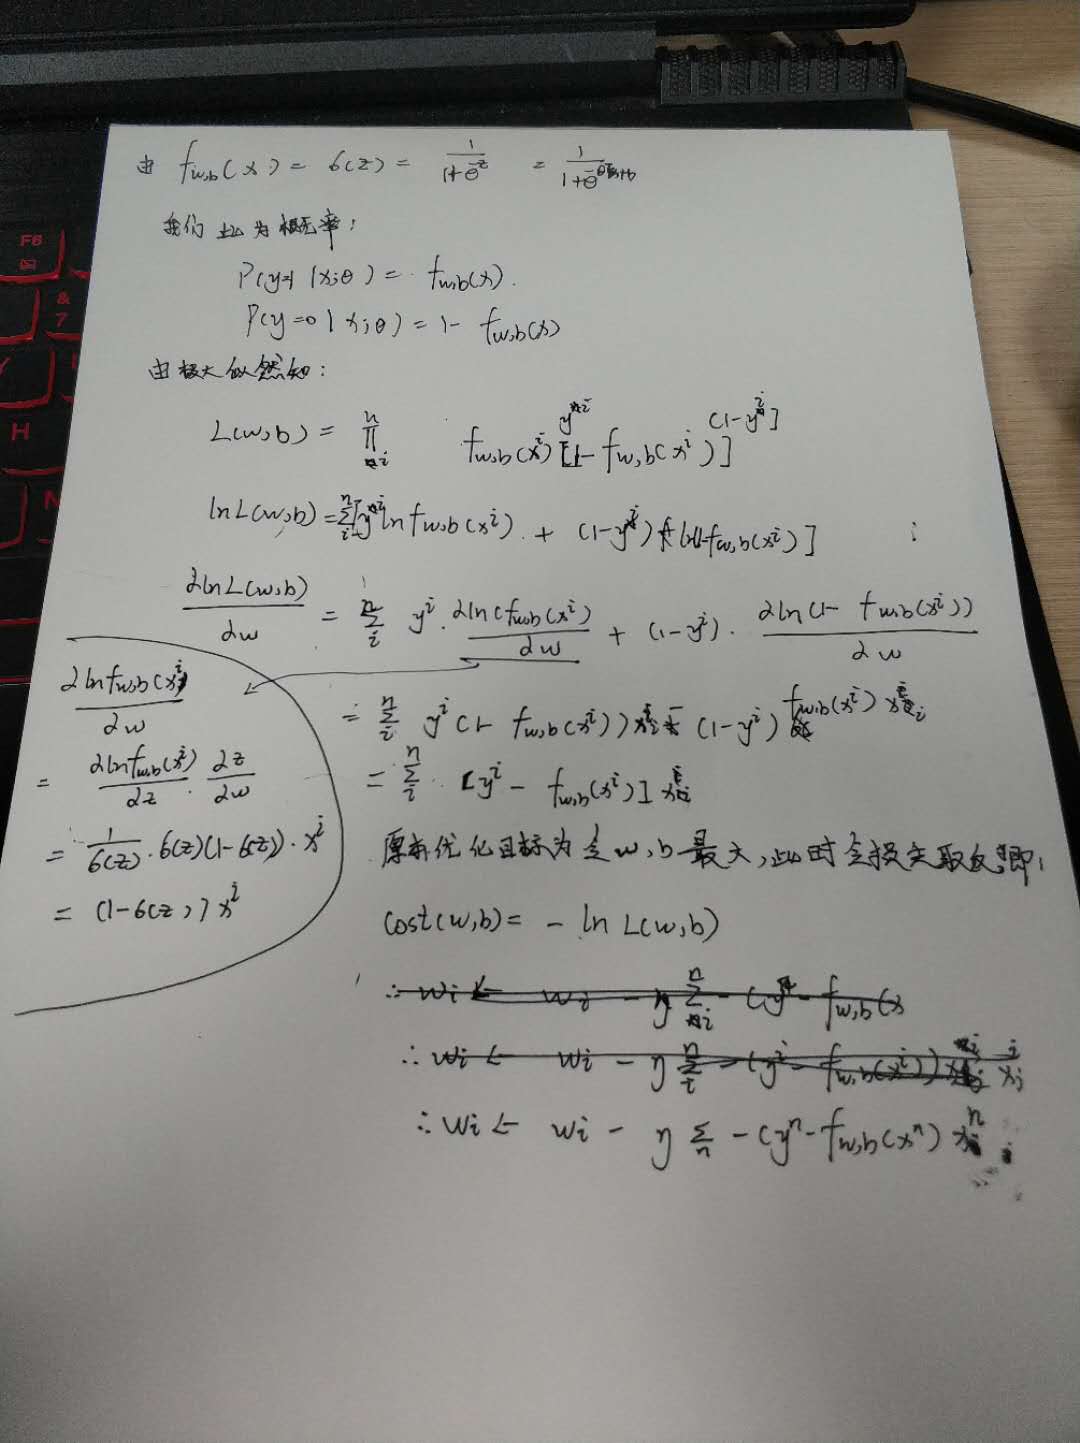 F6
&
7
H
由 fw,b(x) = 6(z) = 1/(1+e^-z) = 1/(1+e^-
我们 此为概率:
P(y=1|x;θ) = fw,b(x).
P(y=0|x;θ) = 1- fw,b(x)
由极大似然知:
L(w,b) = ∏_i^n fw,b(x^i)^y^i [1- fw,b(x^i)]^(1-y^i)]
lnL(w,b) = Σ_i^n [y^i ln fw,b(x^i) + (1-y^i) ln(1-fw,b(x^i)]
∂lnL(w,b)/∂w = Σ_i^n y^i · ∂ln(fw,b(x^i)/∂w + (1-y^i) · ∂ln(1- fw,b(x^i))/∂w
= Σ_i^n y^i (1- fw,b(x^i)) x_i^i - (1-y^i) fw,b(x^i) x_i^i
= Σ_i^n · [y^i - fw,b(x^i)] x_i^i
∂lnfw,b(x^i)/∂w
= ∂lnfw,b(x^i)/∂z · ∂z/∂w
= 1/6(z) · 6(z)(1-6(z)) · x^i
= (1-6(z)) x^i
原本优化目标为令w,b最大,此时令损失取反,即:
Cost(w,b) = - ln L(w,b)
∴ wi ← wi - η Σ_i^n -(y^n - fw,b(x
∴ wi ← wi - η Σ_i^n -(y^i - fw,b(x^i)) x_j^i
∴ wi ← wi - η Σ_n -(y^n - fw,b(x^n) x_i^n